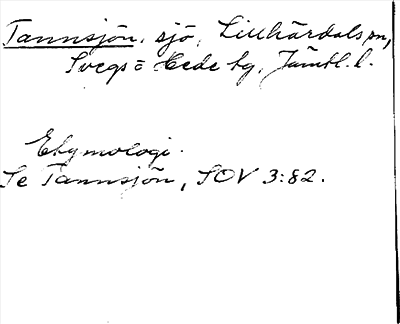 Tannsjön, sjö, Lillhärdals sn,
Svegs = Hede tg, Jämtl. l.
Etymologi.
Se Tannsjön, SOV 3:82.